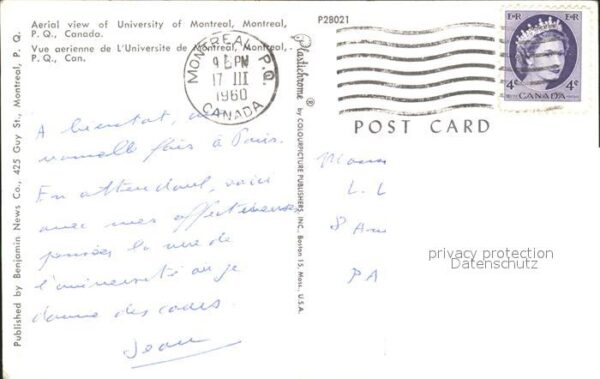 Aerial view of University of Montreal, Montreal,
P. Q., Canada.
Vue aerienne de L'Universite de Montreal, Montreal,
P. Q., Can.
P28021
MONTREAL, P.Q.
9 PM
17 III
1960
CANADA
E R E R
4c 4c
CANADA
POST CARD
Published by Benjamin News Co., 425 Guy St., Montreal, P. Q.
Plastichrome ® by COLOURPICTURE PUBLISHERS, INC., Boston 15, Mass., U.S.A.
A bientôt, une
nouvelle fois à Paris.
En attendant, voici
avec mes affectueuses
pensées la vue de
l'université où je
donne des cours.
Jean
L. L
8 Av
PA
privacy protection
Datenschutz